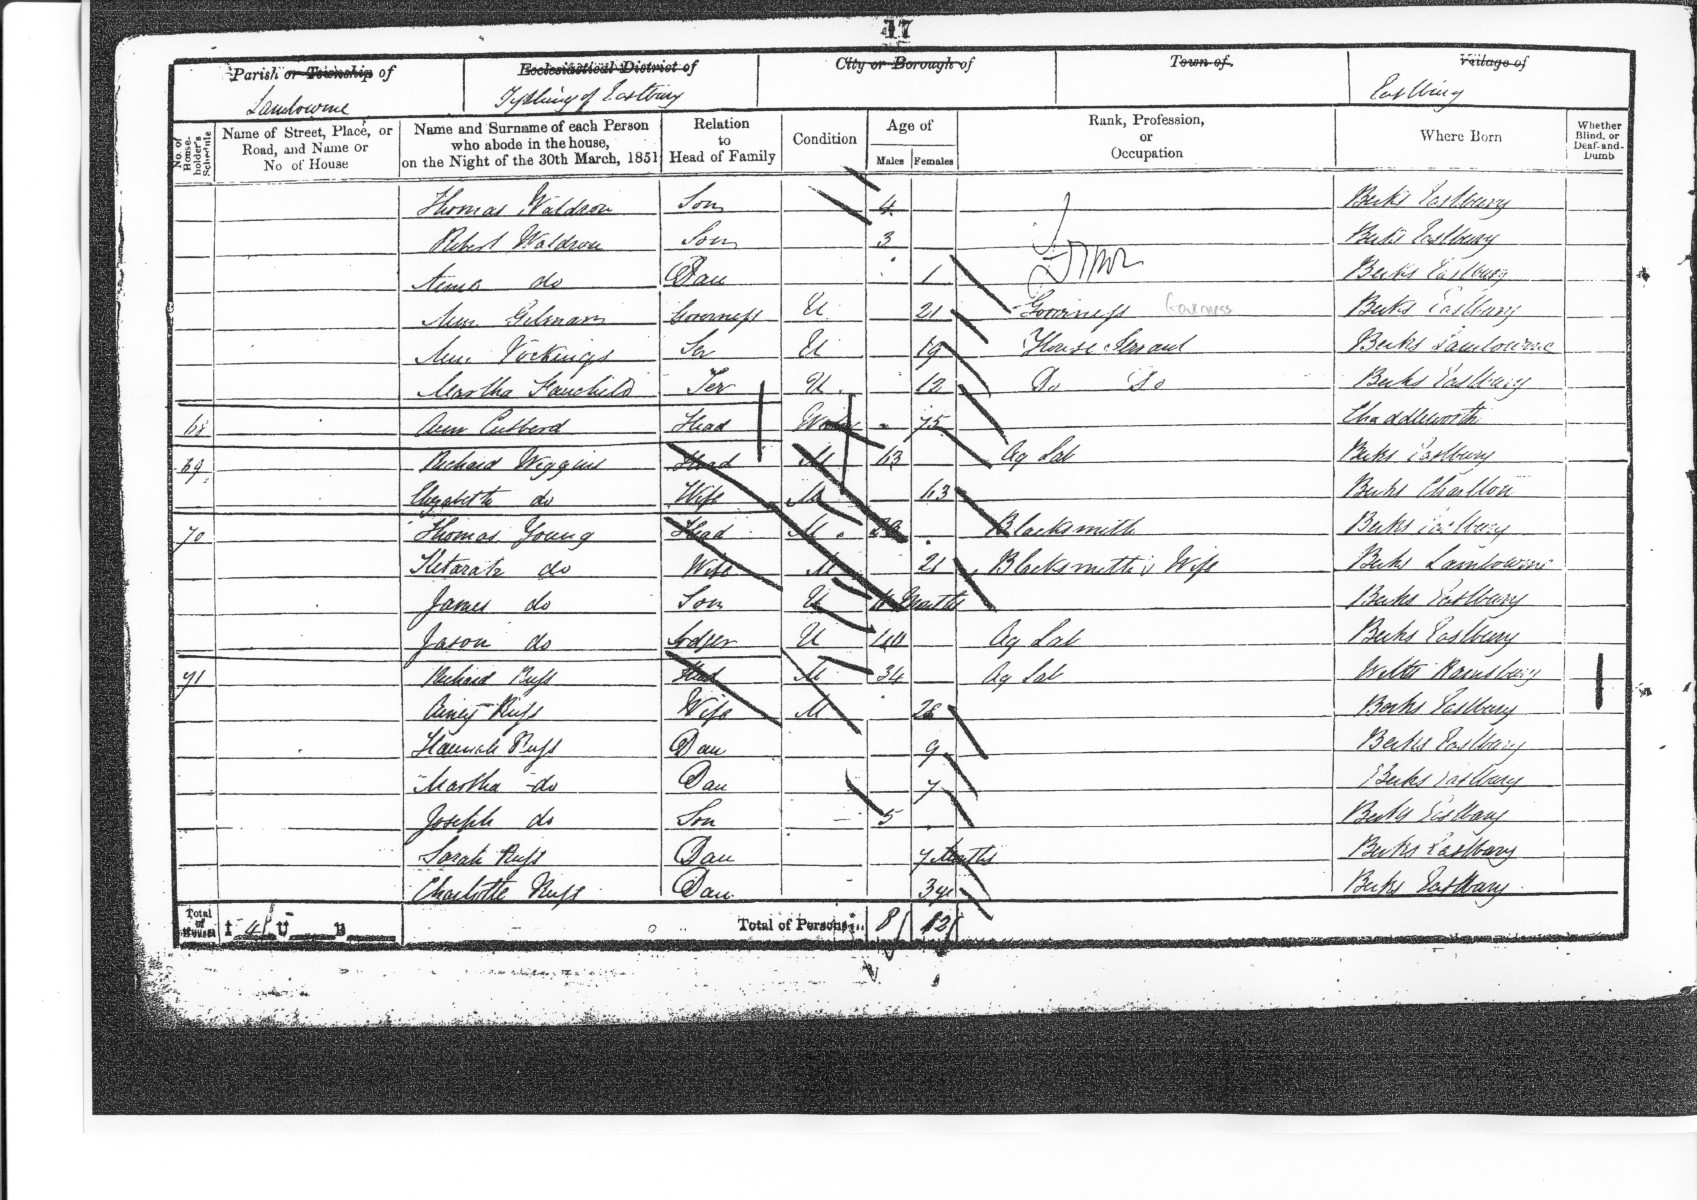 17
Parish or Township of Ecclesiastical District of City or Borough of Town of. Village of
Lambourne Tything of Eastbury Eastbury
No. of House-holder's Schedule Name of Street, Place, or Road, and Name or No. of House Name and Surname of each Person who abode in the house, on the Night of the 30th March, 1851 Relation to Head of Family Condition Age of Males Females Rank, Profession, or Occupation Where Born Whether Blind, or Deaf-and-Dumb
Thomas Waldron Son 4 Berks Eastbury
Robert Waldron Son 3 Berks Eastbury
Anna do Dau 1 Berks Eastbury
Ann Gilmore Governess U 21 Governess Governess Berks Eastbury
Ann Vockings Ser U 19 House Servant Berks Lambourne
Martha Fauchild Ser U 12 Do Do Berks Eastbury
68 Ann Cubberd Head 75 Chaddleworth
69 Richard Wiggins Head M 63 Ag Lab Berks Eastbury
Elizabeth do Wife M 63 Berks Charlton
70 Thomas Young Head M Blacksmith Berks Eastbury
Keturah do Wife M 21 Blacksmith's Wife Berks Lambourne
James do Son U Months Berks Eastbury
Jason do Lodger U 44 Ag Lab Berks Eastbury
71 Richard Russ Head M 34 Ag Lab Wilts Ramsbury
Russ Wife M 28 Berks Eastbury
Hannah Russ Dau 9 Berks Eastbury
Martha do Dau 7 Berks Eastbury
Joseph do Son 5 Berks Eastbury
Sarah Russ Dau 7 Months Berks Eastbury
Charlotte Russ Dau 3 Berks Eastbury
Total of Houses I 4 U B Total of Persons... 8 12